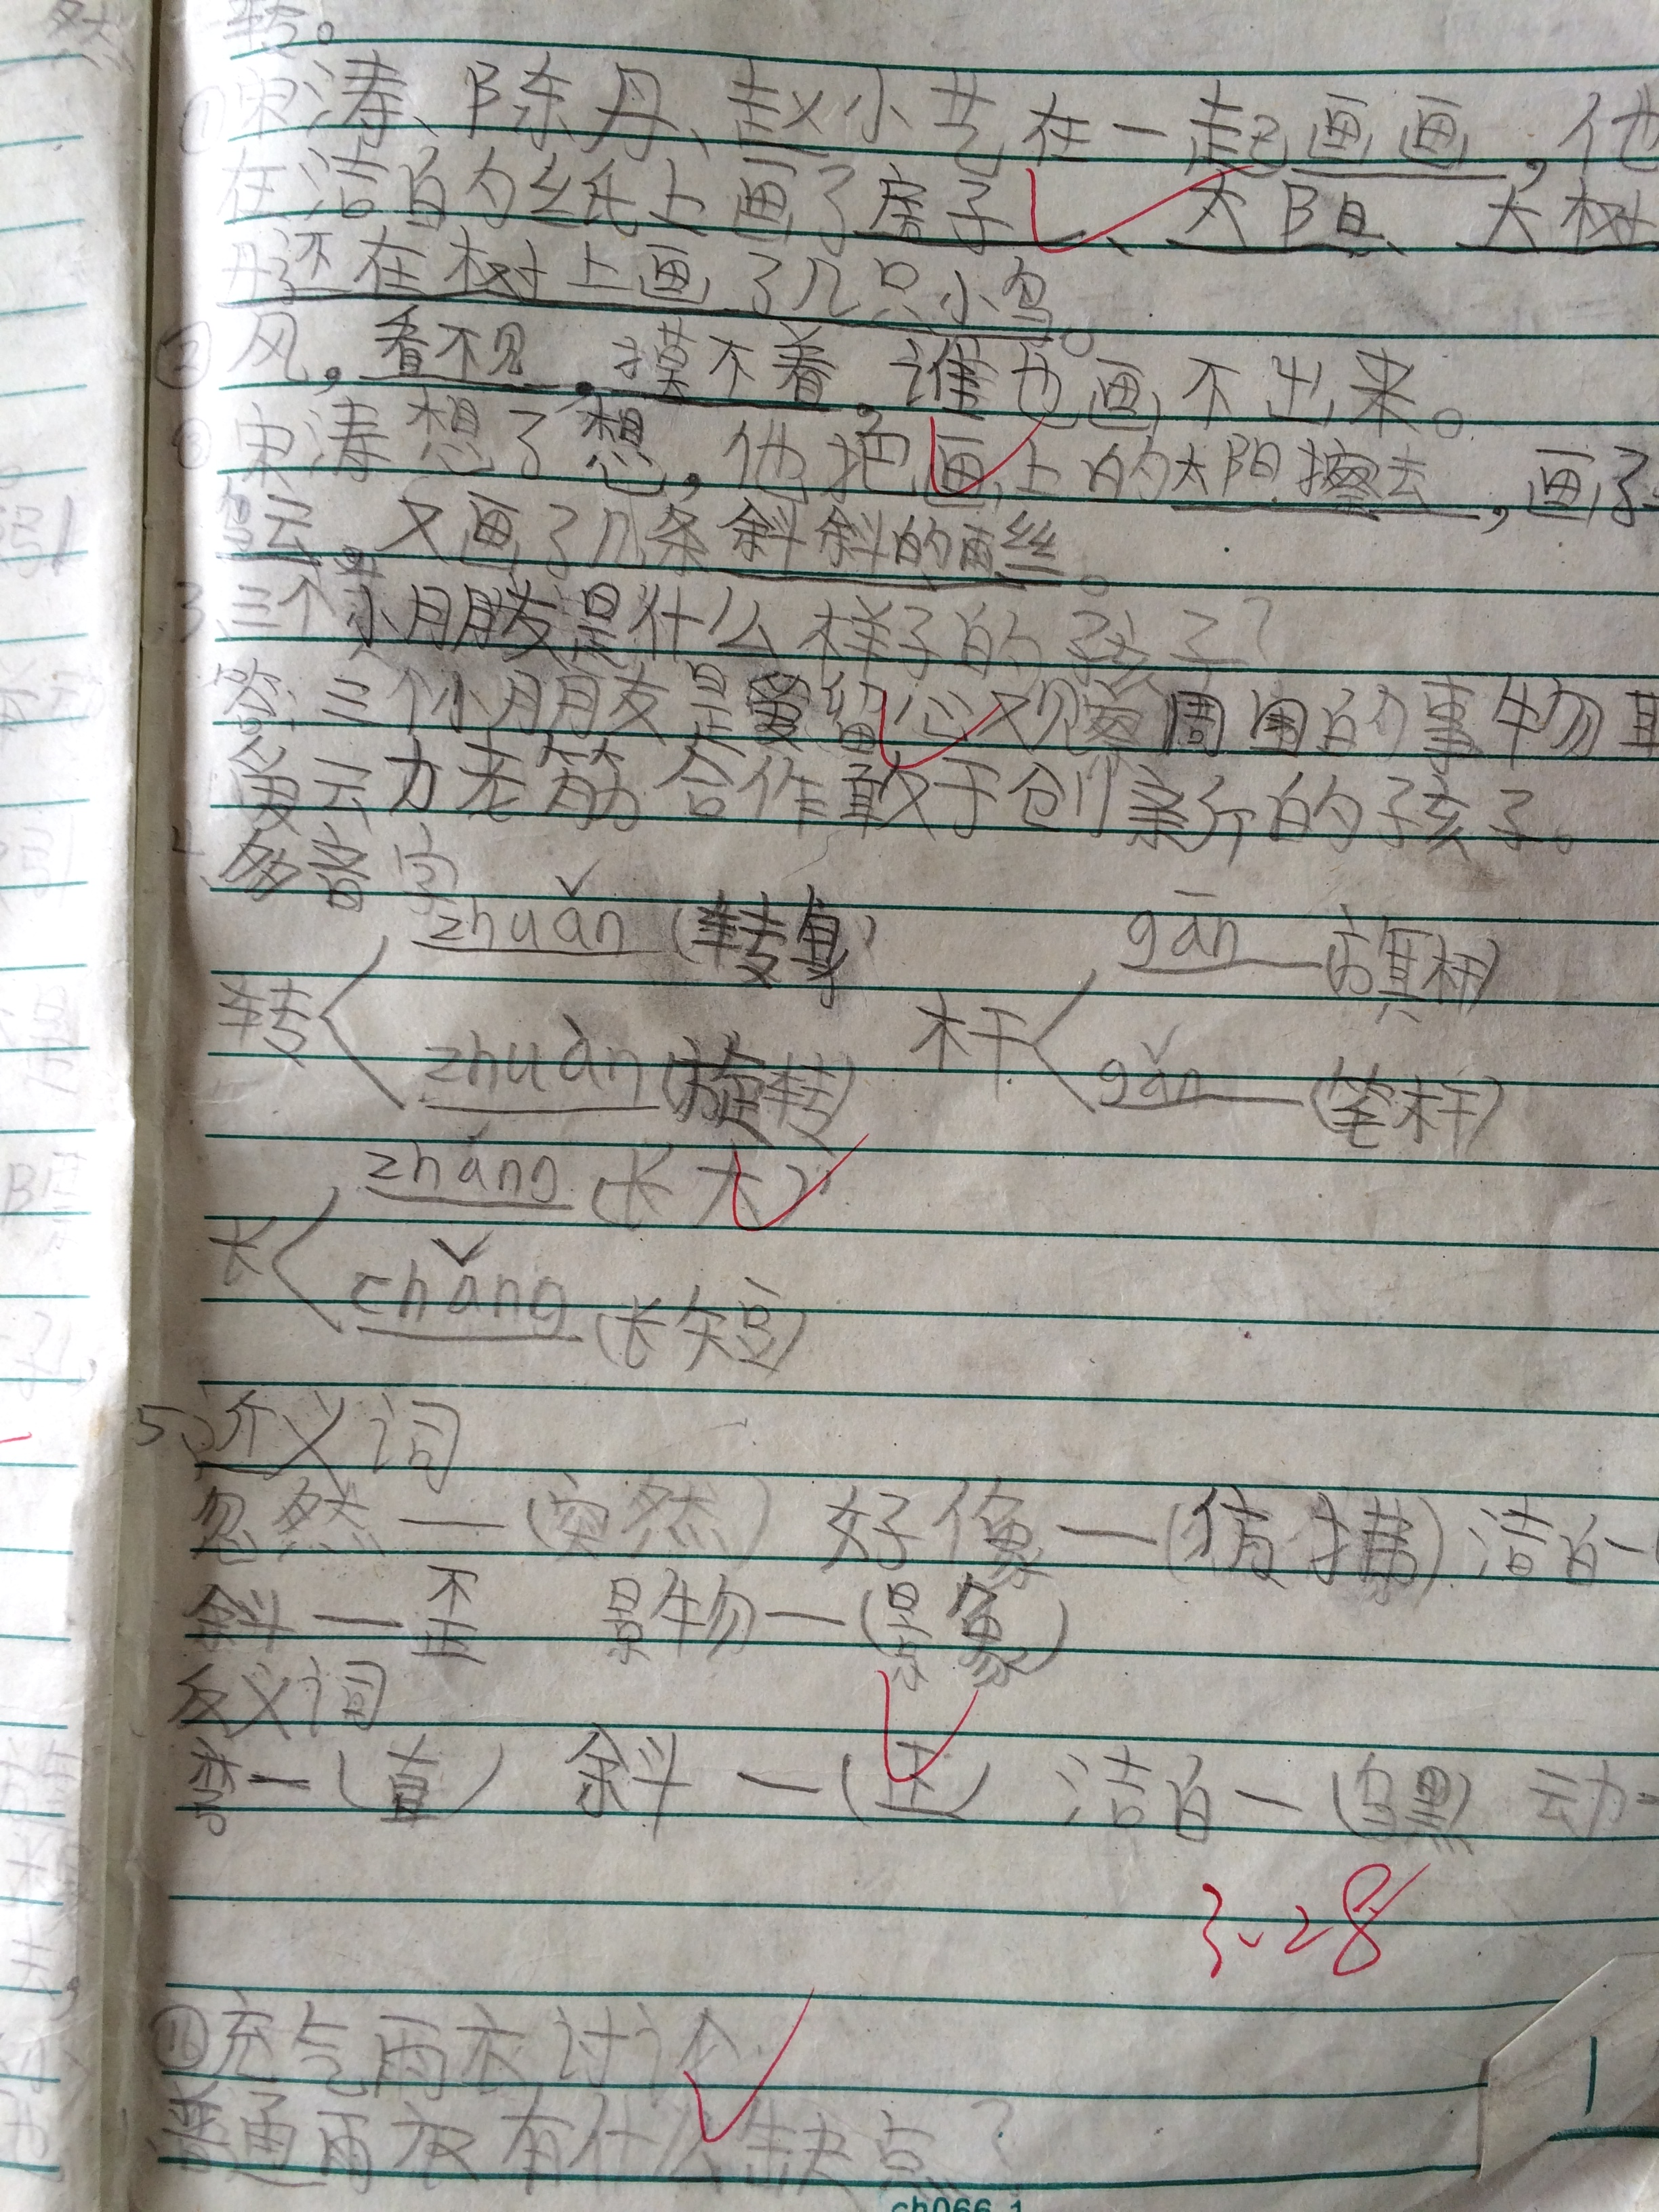 转。
①宋涛、陈丹、赵小艺在一起画画，他
在洁白的纸上画了房子、太阳、大树
丹还在树上画了几只小鸟。
②风，看不见，摸不着，谁也画不出来。
③宋涛想了想，他把画上的太阳擦去，画了
乌云，又画了几条斜斜的雨丝。
3.三个小朋友是什么样子的孩子？
答:三个小朋友是爱留心观察周围的事物
爱云力老筋合作敢于创新的孩子。
多音字
zhuǎn(转身) gān(旗杆)
转 杆
zhuàn(旋转) gǎn(笔杆)
zhǎng(长大)
长
chǎng(长短)
5、近义词
忽然—(突然) 好像—(猜) 洁白—(
斜—歪 景物—(景象)
反义词
弯—(直) 斜—(正) 洁白—(乌黑) 动—
3.28
⑯充气雨衣讨论
普通雨衣有什么缺点？
ch066 1